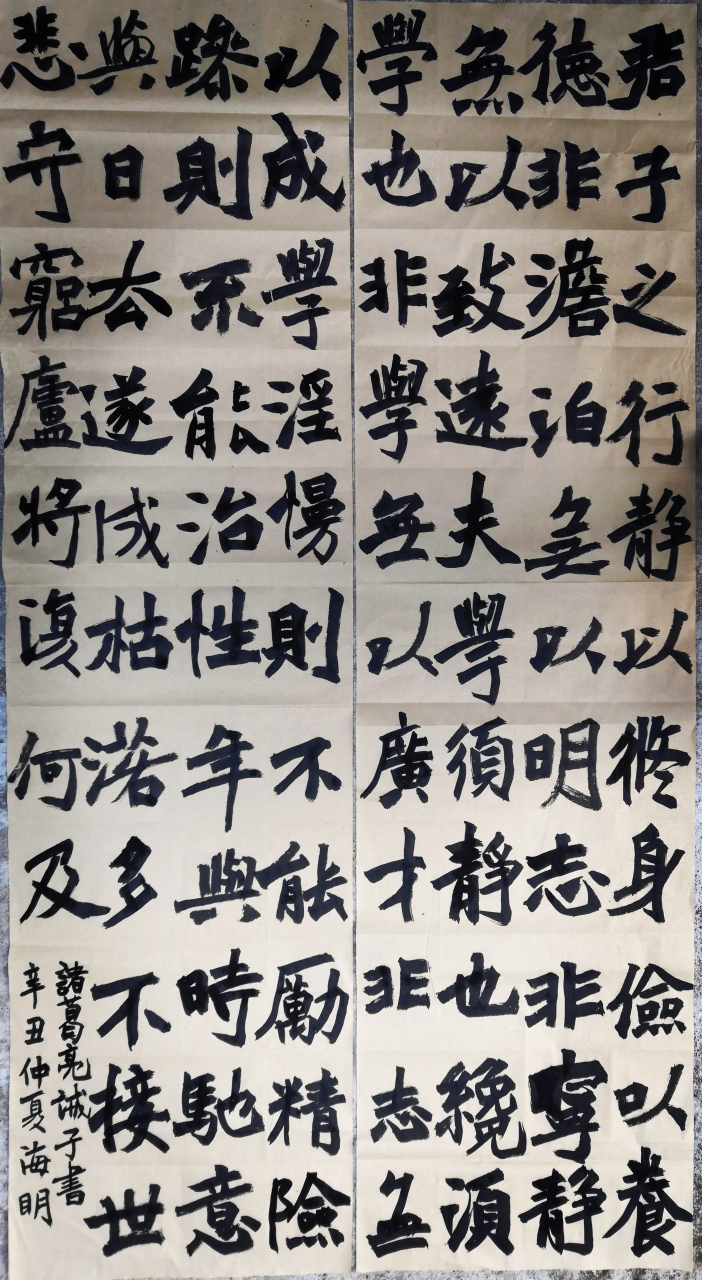 君子之行静以修身儉以養
德非澹泊無以明志非寧静
無以致遠夫學須靜也纔須
學也非學無以廣才非志無
以成學淫慢則不能勵精險
躁則不能治性年與時馳意
與日去遂成枯落多不接世
悲守窮廬將復何及
諸葛亮誡子書
辛丑仲夏海明